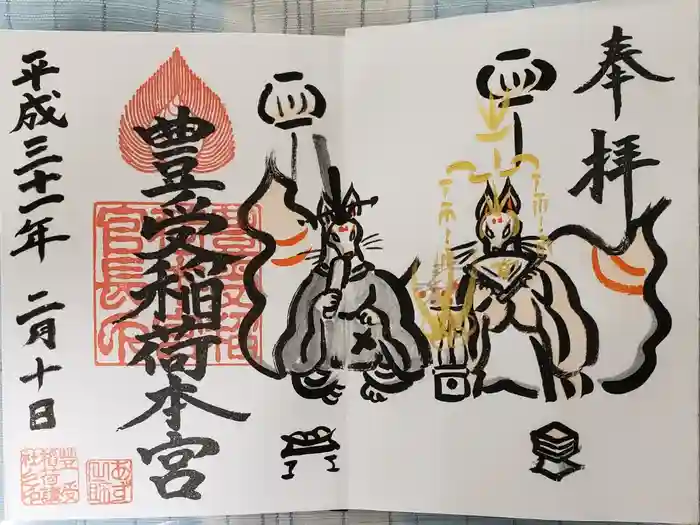 奉拝
豊受稲荷本宮
平成三十一年 二月十日